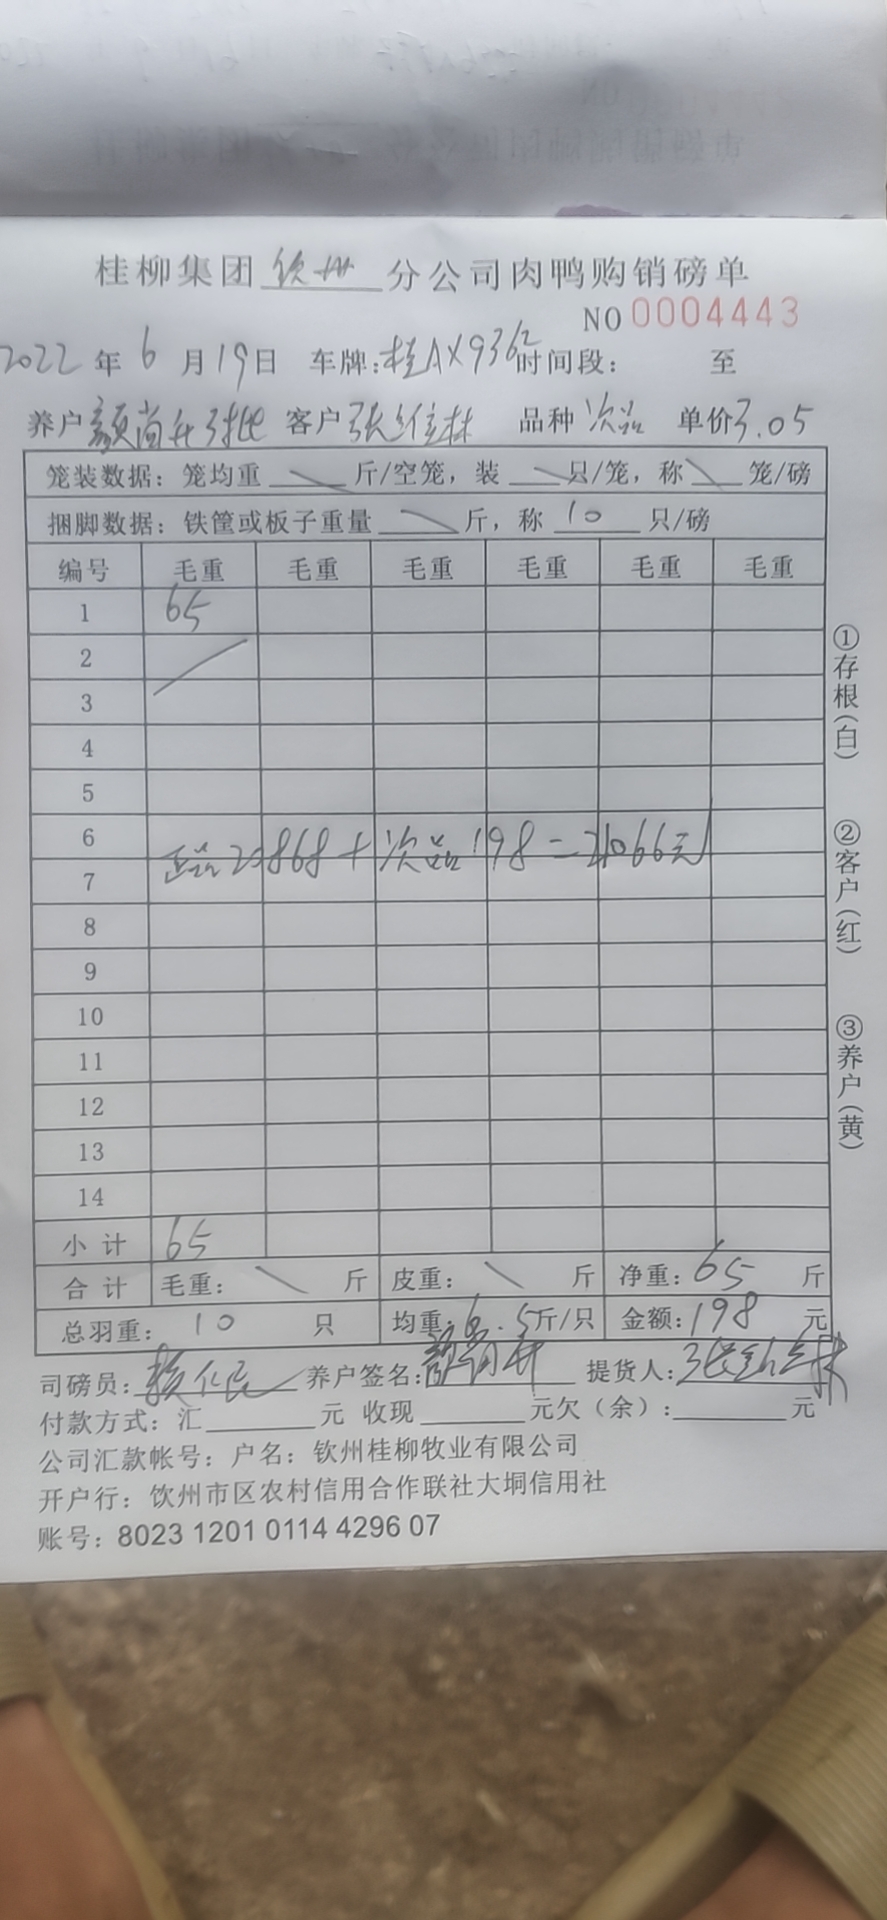 桂柳集团钦州分公司肉鸭购销磅单
NO 0004443
2022年6月19日 车牌:桂AX9362 时间段: 至
养户 客户 张维林 品种 次品 单价3.05
笼装数据：笼均重 斤/空笼，装 只/笼，称 笼/磅
捆脚数据：铁筐或板子重量 斤，称 10 只/磅
编号 毛重 毛重 毛重 毛重 毛重 毛重
1 65
2
3
4
5
6
正品20868+次品198=21066元
7
8
9
10
11
12
13
14
小计 65
合计 毛重： 斤 皮重： 斤 净重：65 斤
总羽重： 10 只 均重：6.5斤/只 金额：198 元
司磅员: 养户签名: 提货人:
付款方式：汇 元 收现 元欠（余）: 元
公司汇款帐号：户名：钦州桂柳牧业有限公司
开户行：钦州市区农村信用合作联社大垌信用社
账号：8023 1201 0114 4296 07
①存根（白）
②客户（红）
③养户（黄）